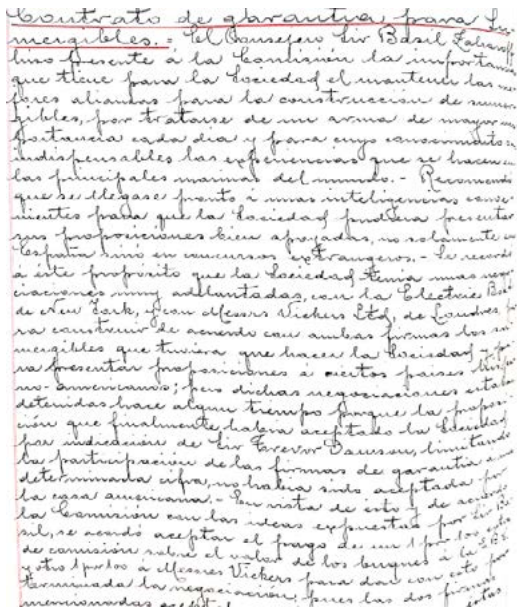 Contrato de garantía para Su-
mergibles. = El Consejero Sir Basil Zaharoff
hizo presente á la Comisión la importancia
que tiene para la Sociedad el mantener las me-
jores alianzas para la construcción de sumer-
gibles, por tratarse de un arma de mayor im-
portancia cada día y para cuyo conocimiento son
indispensables las experiencias que se hacen en
las principales marinas del mundo. - Recomendó
que se llegase pronto á unas inteligencias conve-
nientes para que la Sociedad pudiera presentar
sus proposiciones bien apoyadas, no solamente en
España sino en concursos extrangeros. - Se recordó
a este propósito que la Sociedad tenía unas nego-
ciaciones muy adelantadas, con la Electric Boat
de New York, y con Messrs Vickers Ltd, de Londres, pa-
ra construir de acuerdo con ambas firmas los su-
mergibles que tuviera que hacer la Sociedad y pa-
ra presentar proposiciones á ciertos paises hispa-
no-americanos; pero dichas negociaciones estaban
detenidas hace algun tiempo porque la proposi-
ción que finalmente había aceptado la Sociedad
por indicación de Sir Trevor Dawson, limitando
la participación de las firmas de garantía á una
determinada cifra, no había sido aceptada por
la casa americana. - En vista de esto y de acuerdo
la Comisión con las ideas expuestas por Sir Ba-
sil, se acordó aceptar el pago de un 1 por los
de comisión sobre el valor de los buques á la E.B.
y otro 1 por los á Messrs Vickers para dar con esto por
terminada la negociación, pues las dos firmas
mencionadas